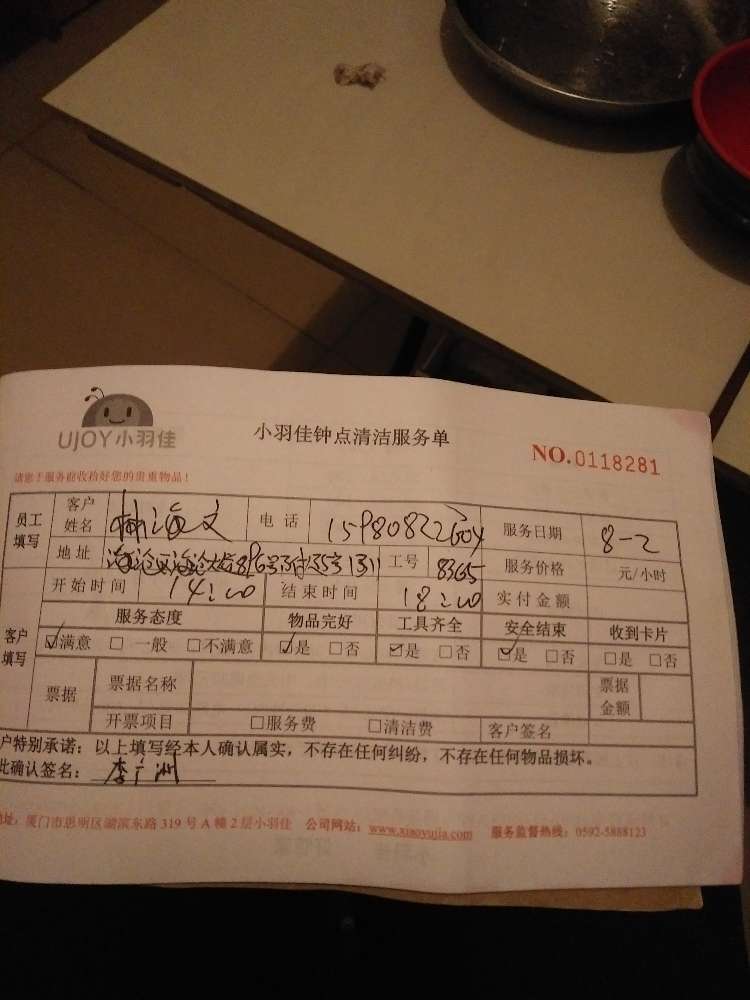 UJOY小羽佳
小羽佳钟点清洁服务单
NO.0118281
请您于服务前收拾好您的贵重物品！
员工填写 客户姓名 林海文 电话 15980822604 服务日期 8-2
地址 工号 8365 服务价格 元/小时
开始时间 14:00 结束时间 18:00 实付金额
客户填写 服务态度 物品完好 工具齐全 安全结束 收到卡片
☑满意 □一般 □不满意 ☑是 □否 ☑是 □否 ☑是 □否 □是 □否
票据 票据名称 票据金额
开票项目 □服务费 □清洁费 客户签名
户特别承诺：以上填写经本人确认属实，不存在任何纠纷，不存在任何物品损坏。
此确认签名：李广洲
地址：厦门市思明区湖滨东路 319 号 A 幢 2 层小羽佳 公司网站：www.xiaoyujia.com 服务监督热线：0592-5888123